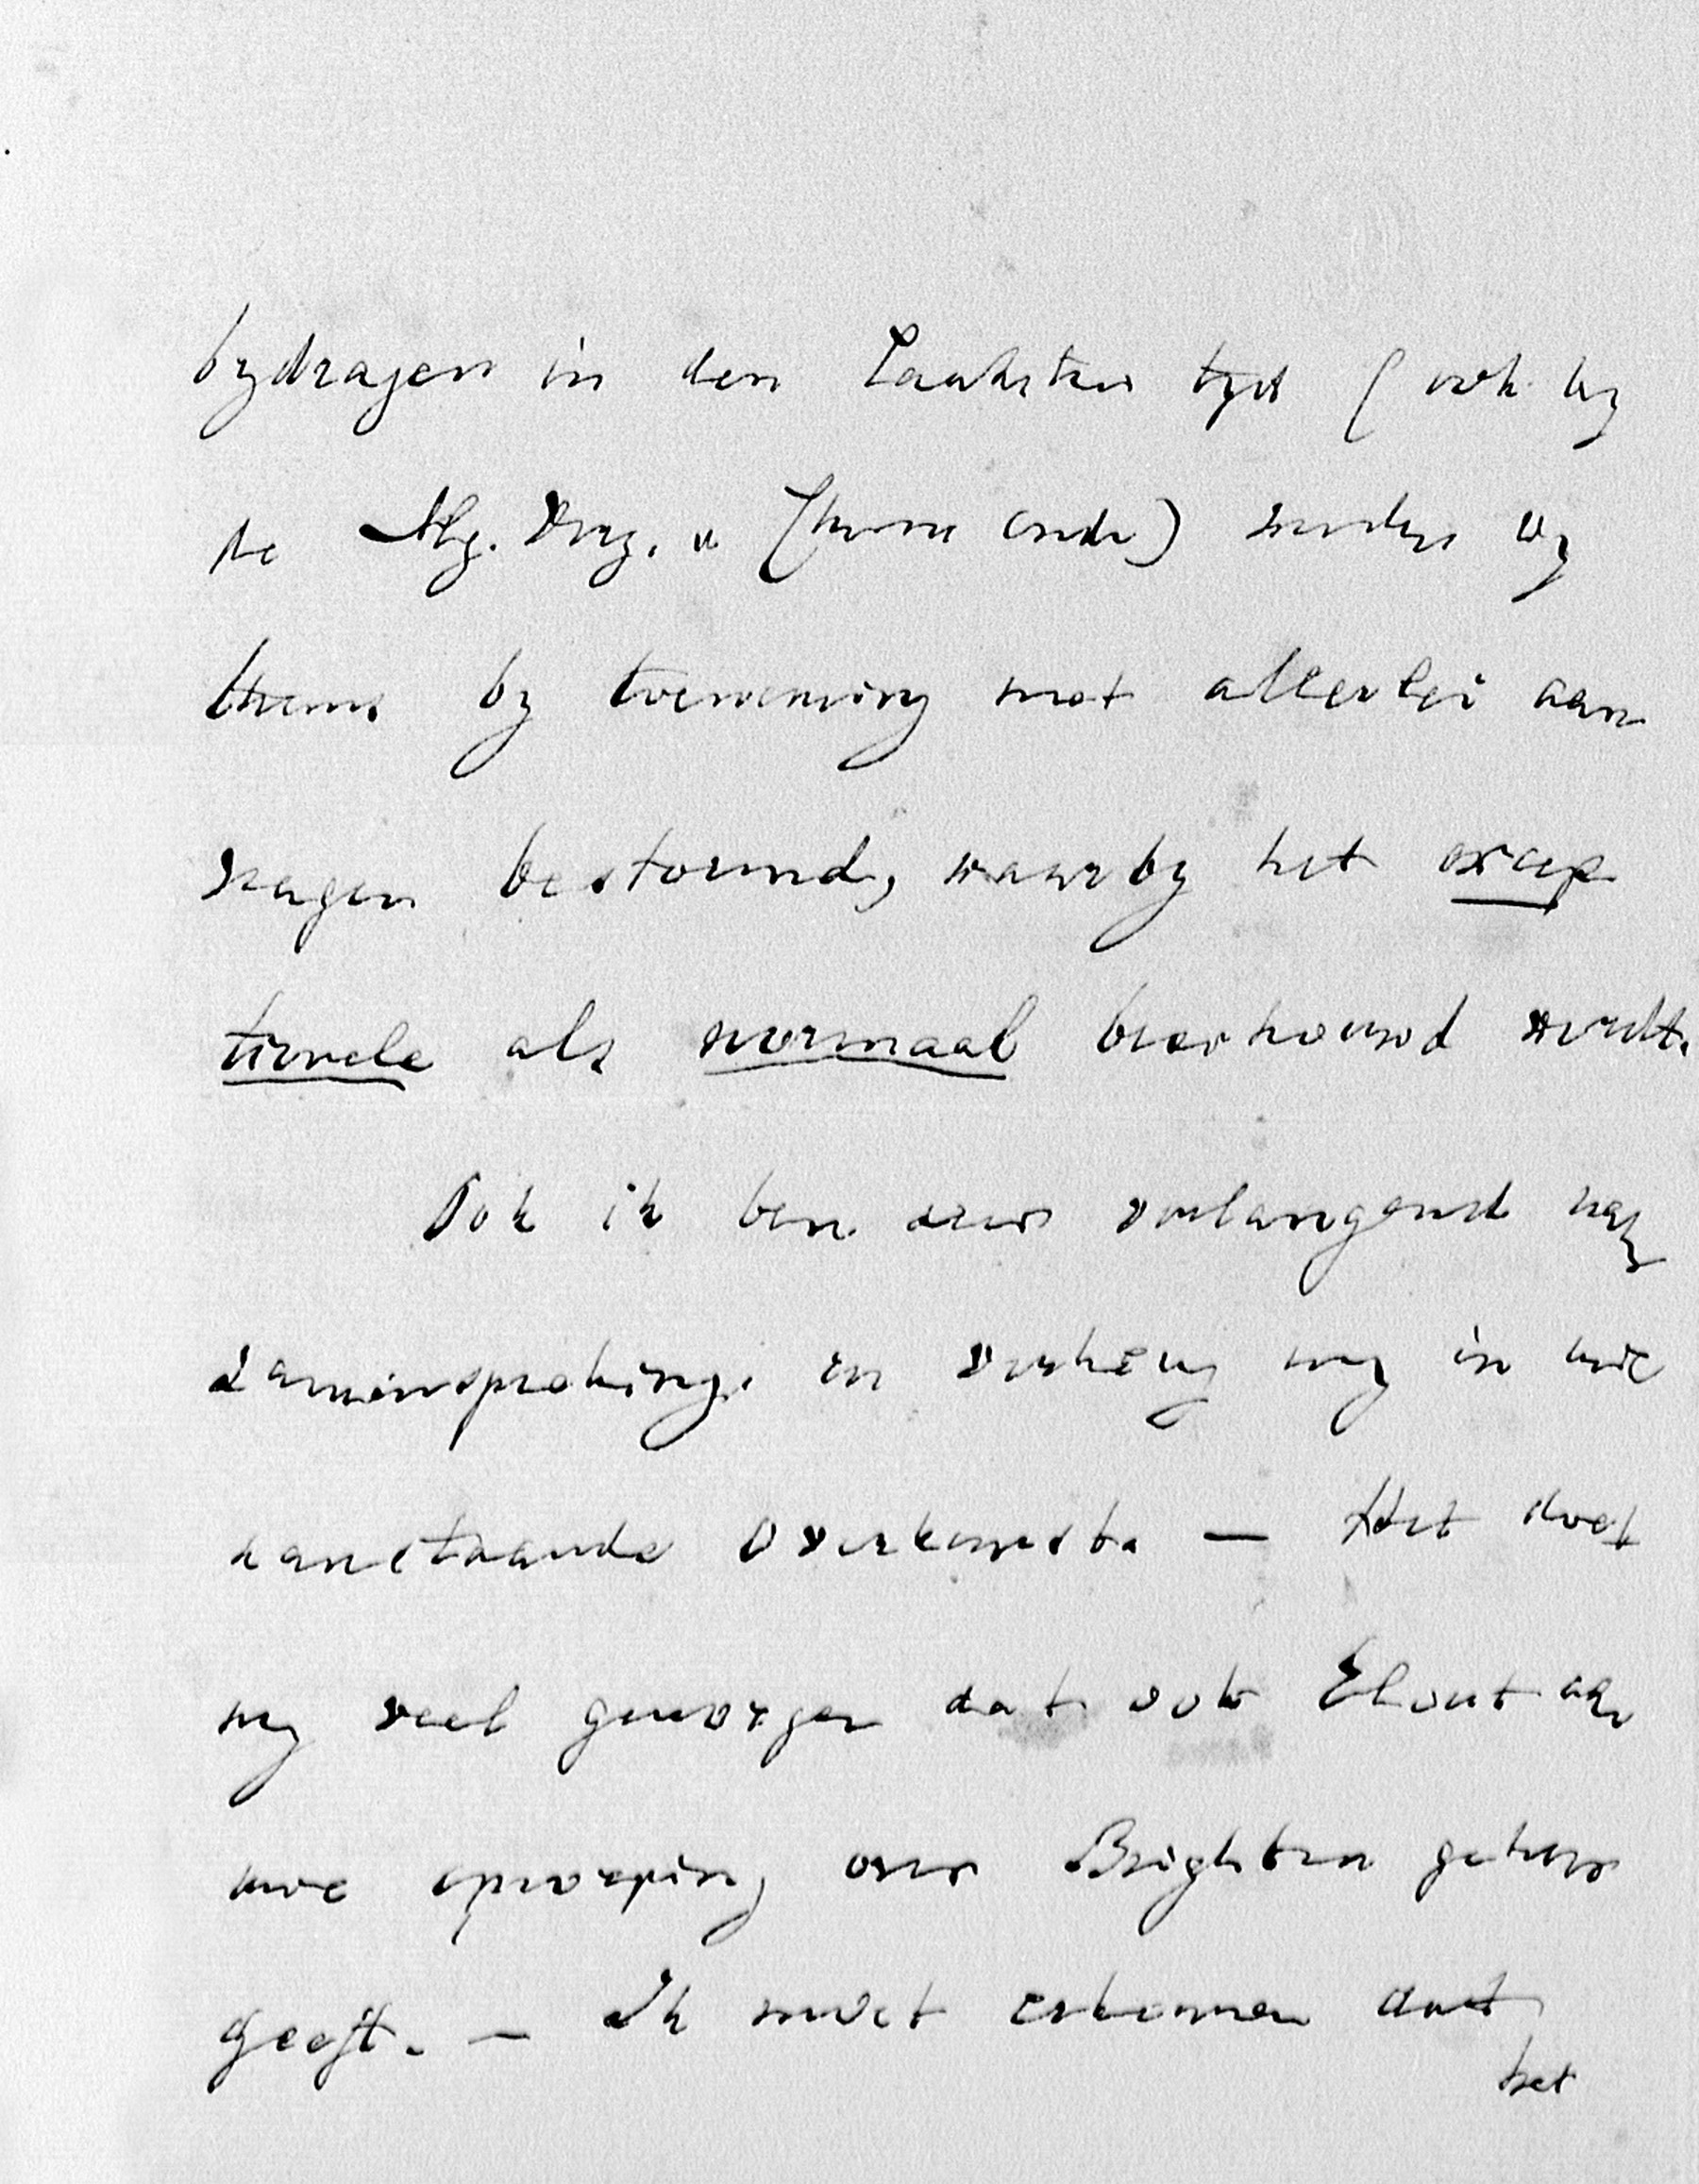 bydragen in den laatsten tyd (ook by
de Alg. Verg. u (hunne orde) worden wy
thans by toeneming met allerlei aan
vragen bestormd, waarby het excep
tionele als normaal beschouwd wordt.
Ook ik ben zeer verlangend naar
zamenspreking, en verheug my in uwe
aanstaande overkomst. — Het doet
my veel genoegen dat ook Elout aan
uwe oproeping over Brighton gehoor
geeft. — Ik moet erkennen dat
het